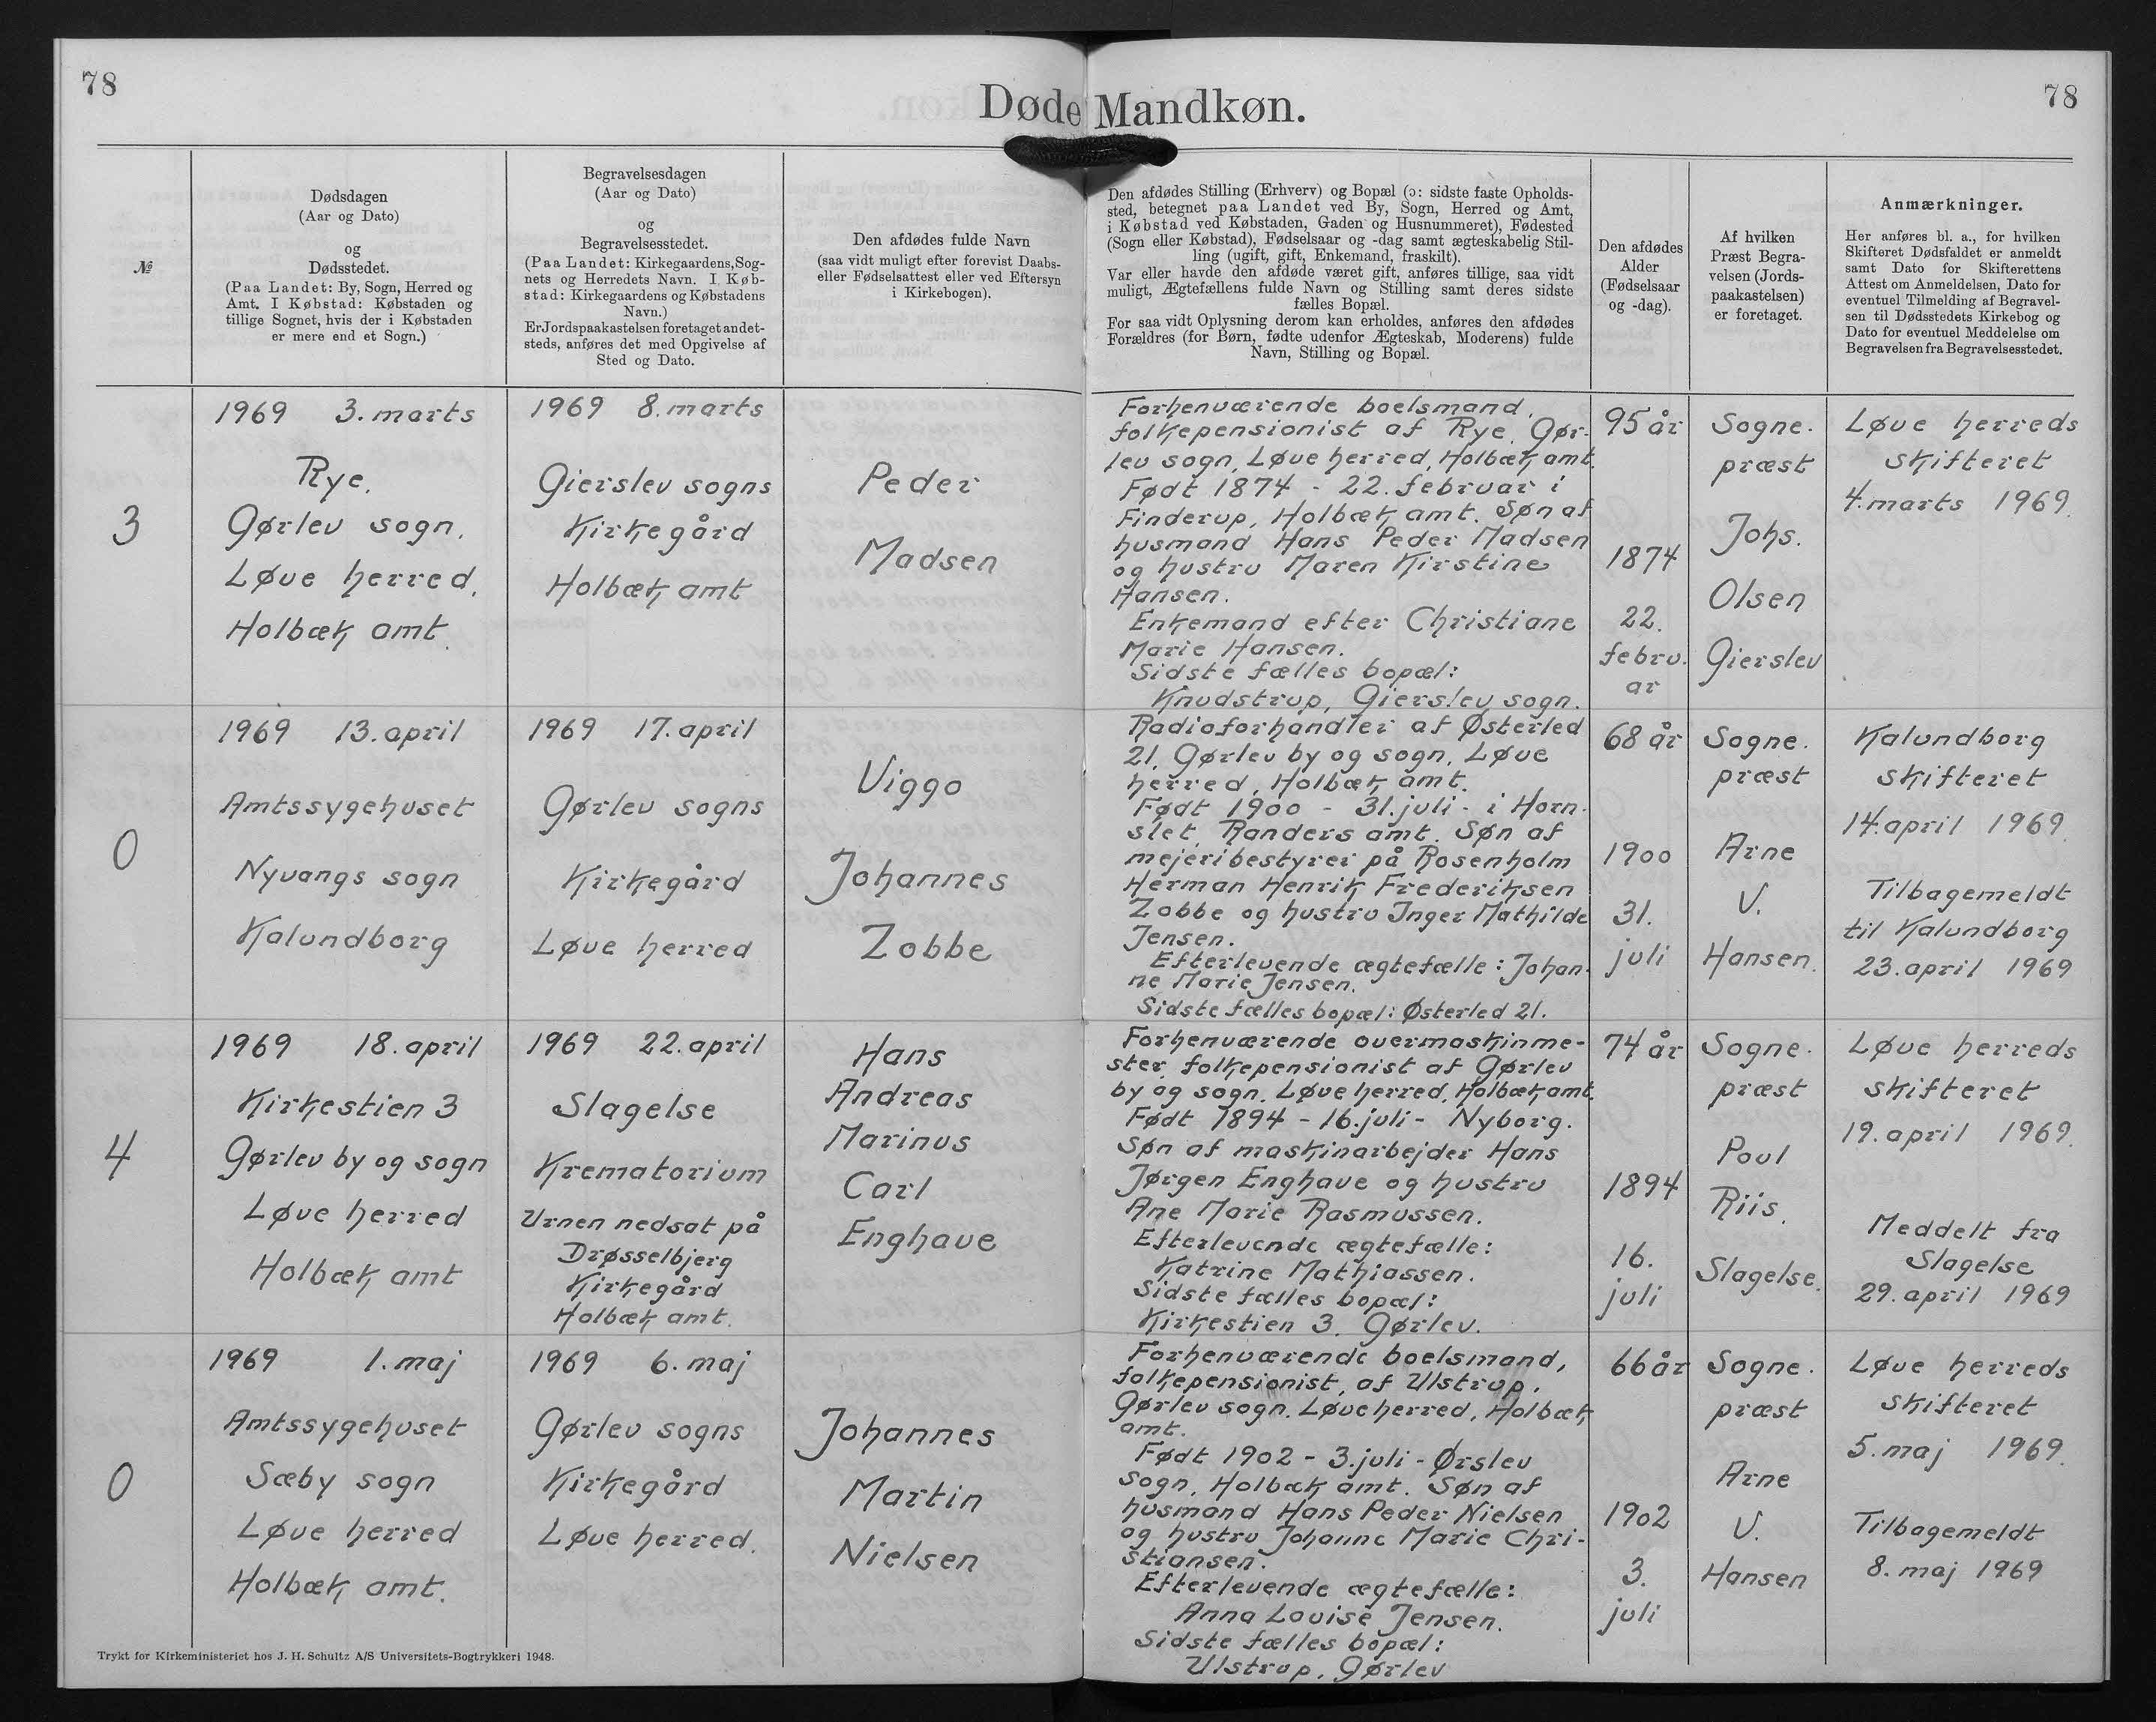 78
Døde Mandkøn.
78
№
Dødsdagen
(Aar og Dato)
og
Dødsstedet.
(Paa Landet: By, Sogn, Herred og
Amt. I Købstad: Købstaden og
tillige Sognet, hvis der i Købstaden
er mere end et Sogn.)
Begravelsesdagen
(Aar og Dato)
og
Begravelsesstedet.
(Paa Landet: Kirkegaardens, Sog-
nets og Herredets Navn. I Køb-
stad: Kirkegaardens og Købstadens
Navn.)
Er Jordspaakastelsen foretaget andet-
steds, anføres det med Opgivelse af
Sted og Dato.
Den afdødes fulde Navn
(saa vidt muligt efter forevist Daabs-
eller Fødselsattest eller ved Eftersyn
i Kirkebogen).
Den afdødes Stilling (Erhverv) og Bopæl (ɔ: sidste faste Opholds-
sted, betegnet paa Landet ved By, Sogn, Herred og Amt,
i Købstad ved Købstaden, Gaden og Husnummeret), Fødested
(Sogn eller Købstad), Fødselsaar og -dag samt ægteskabelig Stil-
ling (ugift, gift, Enkemand, fraskilt).
Var eller havde den afdøde været gift, anføres tillige, saa vidt
muligt, Ægtefællens fulde Navn og Stilling samt deres sidste
fælles Bopæl.
For saa vidt Oplysning derom kan erholdes, anføres den afdødes
Forældres (for Børn, fødte udenfor Ægteskab, Moderens) fulde
Navn, Stilling og Bopæl.
Den afdødes
Alder
(Fødselsaar
og -dag).
Af hvilken
Præst Begra-
velsen (Jords-
paakastelsen)
er foretaget.
Anmærkninger.
Her anføres bl. a., for hvilken
Skifteret Dødsfaldet er anmeldt
samt Dato for Skifterettens
Attest om Anmeldelsen, Dato for
eventuel Tilmelding af Begravel-
sen til Dødsstedets Kirkebog og
Dato for eventuel Meddelelse om
Begravelsen fra Begravelsesstedet.
3
1969 3. marts
Rye.
Gørlev sogn.
Løve herred.
Holbæk amt.
1969 8. marts
Gierslev sogns
Kirkegård
Holbæk amt
Peder
Madsen
Forhenværende boelsmand,
folkepensionist af Rye, Gør-
lev sogn, Løve herred, Holbæk amt.
Født 1874 - 22. februar i
Finderup, Holbæk amt. Søn af
husmand Hans Peder Madsen
og hustru Maren Kirstine
Hansen.
Enkemand efter Christiane
Marie Hansen.
Sidste fælles bopæl:
Knudstrup, Gierslev sogn.
95 år
1874
22.
febru-
ar
Sogne-
præst
Johs.
Olsen
Gierslev
Løve herreds
skifteret
4. marts 1969.
0
1969 13. april
Amtssygehuset
Nyvangs sogn
Kalundborg
1969 17. april
Gørlev sogns
Kirkegård
Løve herred
Viggo
Johannes
Zobbe
Radioforhandler af Østerled
21, Gørlev by og sogn, Løve
herred, Holbæk amt.
Født 1900 - 31. juli - i Horn-
slet, Randers amt. Søn af
mejeribestyrer på Rosenholm
Herman Henrik Frederiksen
Zobbe og hustru Inger Mathilde
Jensen.
Efterlevende ægtefælle: Johan-
ne Marie Jensen.
Sidste fælles bopæl: Østerled 21.
68 år
1900
31.
juli
Sogne-
præst
Arne
V.
Hansen.
Kalundborg
skifteret
14. april 1969.
Tilbagemeldt
til Kalundborg
23. april 1969
4
1969 18. april
Kirkestien 3
Gørlev by og sogn
Løve herred
Holbæk amt
1969 22. april
Slagelse
Krematorium
Urnen nedsat på
Drøsselbjerg
Kirkegård
Holbæk amt.
Hans
Andreas
Marinus
Carl
Enghave
Forhenværende overmaskinme-
ster, folkepensionist af Gørlev
by og sogn. Løve herred, Holbæk amt.
Født 1894 - 16. juli - Nyborg.
Søn af maskinarbejder Hans
Jørgen Enghave og hustru
Ane Marie Rasmussen.
Efterlevende ægtefælle:
Katrine Mathiassen.
Sidste fælles bopæl:
Kirkestien 3, Gørlev.
74 år
1894
16.
juli
Sogne-
præst
Poul
Riis,
Slagelse.
Løve herreds
skifteret
19. april 1969.
Meddelt fra
Slagelse
29. april 1969
0
1969 1. maj
Amtssygehuset
Sæby sogn
Løve herred
Holbæk amt.
1969 6. maj
Gørlev sogns
Kirkegård
Løve herred.
Johannes
Martin
Nielsen
Forhenværende boelsmand,
folkepensionist, af Ulstrup,
Gørlev sogn. Løve herred, Holbæk
amt.
Født 1902 - 3. juli - Ørslev
sogn, Holbæk amt. Søn af
husmand Hans Peder Nielsen
og hustru Johanne Marie Chri-
stiansen.
Efterlevende ægtefælle:
Anna Louise Jensen.
Sidste fælles bopæl:
Ulstrup, Gørlev
66 år
1902
3.
juli
Sogne-
præst
Arne
V.
Hansen
Løve herreds
skifteret
5. maj 1969.
Tilbagemeldt
8. maj 1969
Trykt for Kirkeministeriet hos J. H. Schultz A/S Universitets-Bogtrykkeri 1948.